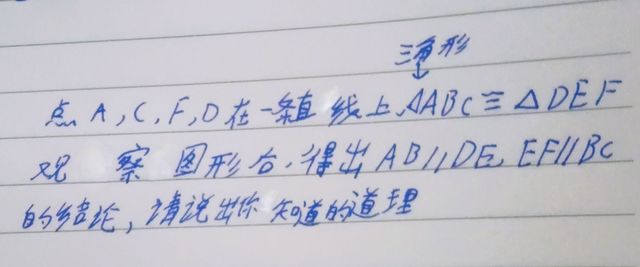 三角形
点A,C,F,D在一条直线上,△ABC≡△DEF
观察图形后,得出AB//DE,EF//BC
的结论,请说出你知道的道理